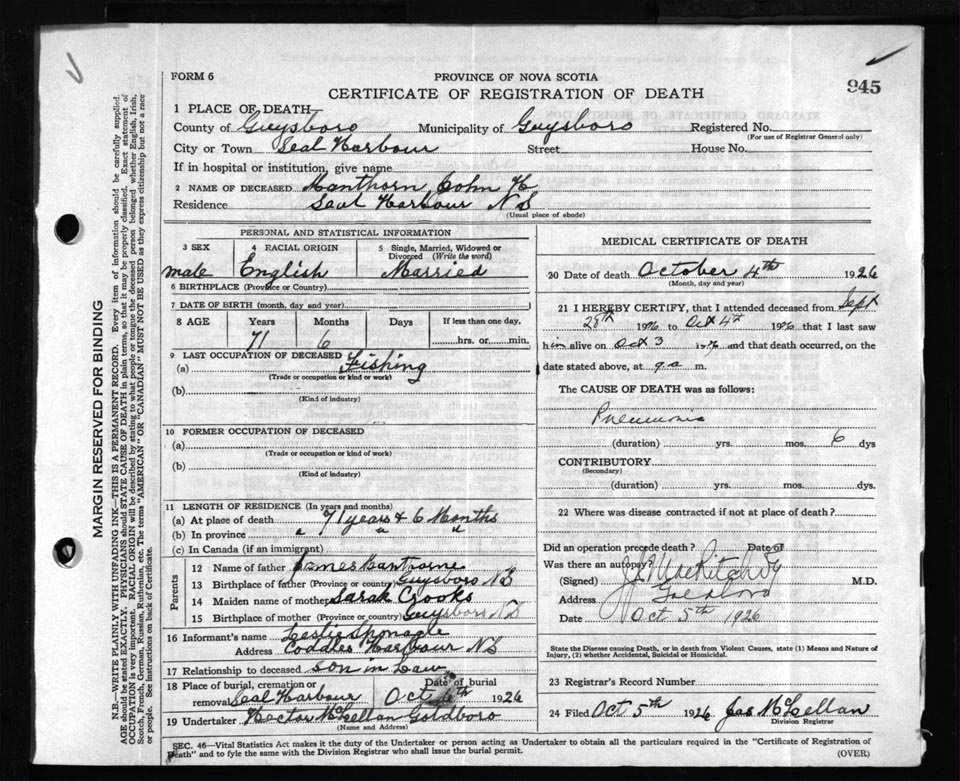 FORM 6
PROVINCE OF NOVA SCOTIA
CERTIFICATE OF REGISTRATION OF DEATH
945
1 PLACE OF DEATH—
County of Guysboro Municipality of Guysboro Registered No.
(For use of Registrar General only)
City or Town Seal Harbour Street House No.
If in hospital or institution, give name
2 NAME OF DECEASED John H
Residence Seal Harbour NS
(Usual place of abode)
PERSONAL AND STATISTICAL INFORMATION
3 SEX 4 RACIAL ORIGIN 5 Single, Married, Widowed or Divorced (Write the word)
male English Married
6 BIRTHPLACE (Province or Country)
7 DATE OF BIRTH (month, day and year)
8 AGE Years Months Days If less than one day,
71 6 hrs. or min.
9 LAST OCCUPATION OF DECEASED
(a) Fishing
(Trade or occupation or kind of work)
(b)
(Kind of industry)
10 FORMER OCCUPATION OF DECEASED
(a)
(Trade or occupation or kind of work)
(b)
(Kind of industry)
11 LENGTH OF RESIDENCE (In years and months)
(a) At place of death 71 years & 6 Months
(b) In province " " "
(c) In Canada (if an immigrant)
Parents
12 Name of father James
13 Birthplace of father (Province or country) Guysboro NS
14 Maiden name of mother Sarah Crooks
15 Birthplace of mother (Province or country) Guysboro NS
16 Informant's name Leslie
Address Coddles Harbour NS
17 Relationship to deceased son in Law
18 Place of burial, cremation or removal Seal Harbour Date of burial Oct 1926
19 Undertaker Hector McLellan Goldboro
(Name and Address)
MEDICAL CERTIFICATE OF DEATH
20 Date of death October 4th 1926
(Month, day and year)
21 I HEREBY CERTIFY, that I attended deceased from Sept
28th 1926 to Oct 4th 1926 that I last saw
him alive on Oct 3 1926 and that death occurred, on the
date stated above, at 9 a m.
The CAUSE OF DEATH was as follows:
Pneumonia
(duration) yrs. mos. 6 dys
CONTRIBUTORY
(Secondary)
(duration) yrs. mos. dys.
22 Where was disease contracted if not at place of death?
Did an operation precede death? Date of
Was there an autopsy?
(Signed) M.D.
Address Goldboro
Date Oct 5th 1926
State the Disease causing Death, or in death from Violent Causes, state (1) Means and Nature of
Injury, (2) whether Accidental, Suicidal or Homicidal.
23 Registrar's Record Number
24 Filed Oct 5th 1926 Jas McLellan
Division Registrar
SEC. 46—Vital Statistics Act makes it the duty of the Undertaker or person acting as Undertaker to obtain all the particulars required in the "Certificate of Registration of
Death" and to fyle the same with the Division Registrar who shall issue the burial permit.
(OVER)
MARGIN RESERVED FOR BINDING
N.B.—WRITE PLAINLY WITH UNFADING INK—THIS IS A PERMANENT RECORD. Every item of information should be carefully supplied.
AGE should be stated EXACTLY. PHYSICIANS should STATE CAUSE OF DEATH in plain terms, so that it may be properly classified. Exact statement of
OCCUPATION is very important. RACIAL ORIGIN will be described by stating to what people or tongue the deceased person belonged whether English, Irish,
Scotch, French, German, Russian, Ruthenian, etc. The terms "AMERICAN" OR "CANADIAN" MUST NOT BE USED as they express citizenship but not a race
or people. See instructions on back of Certificate.